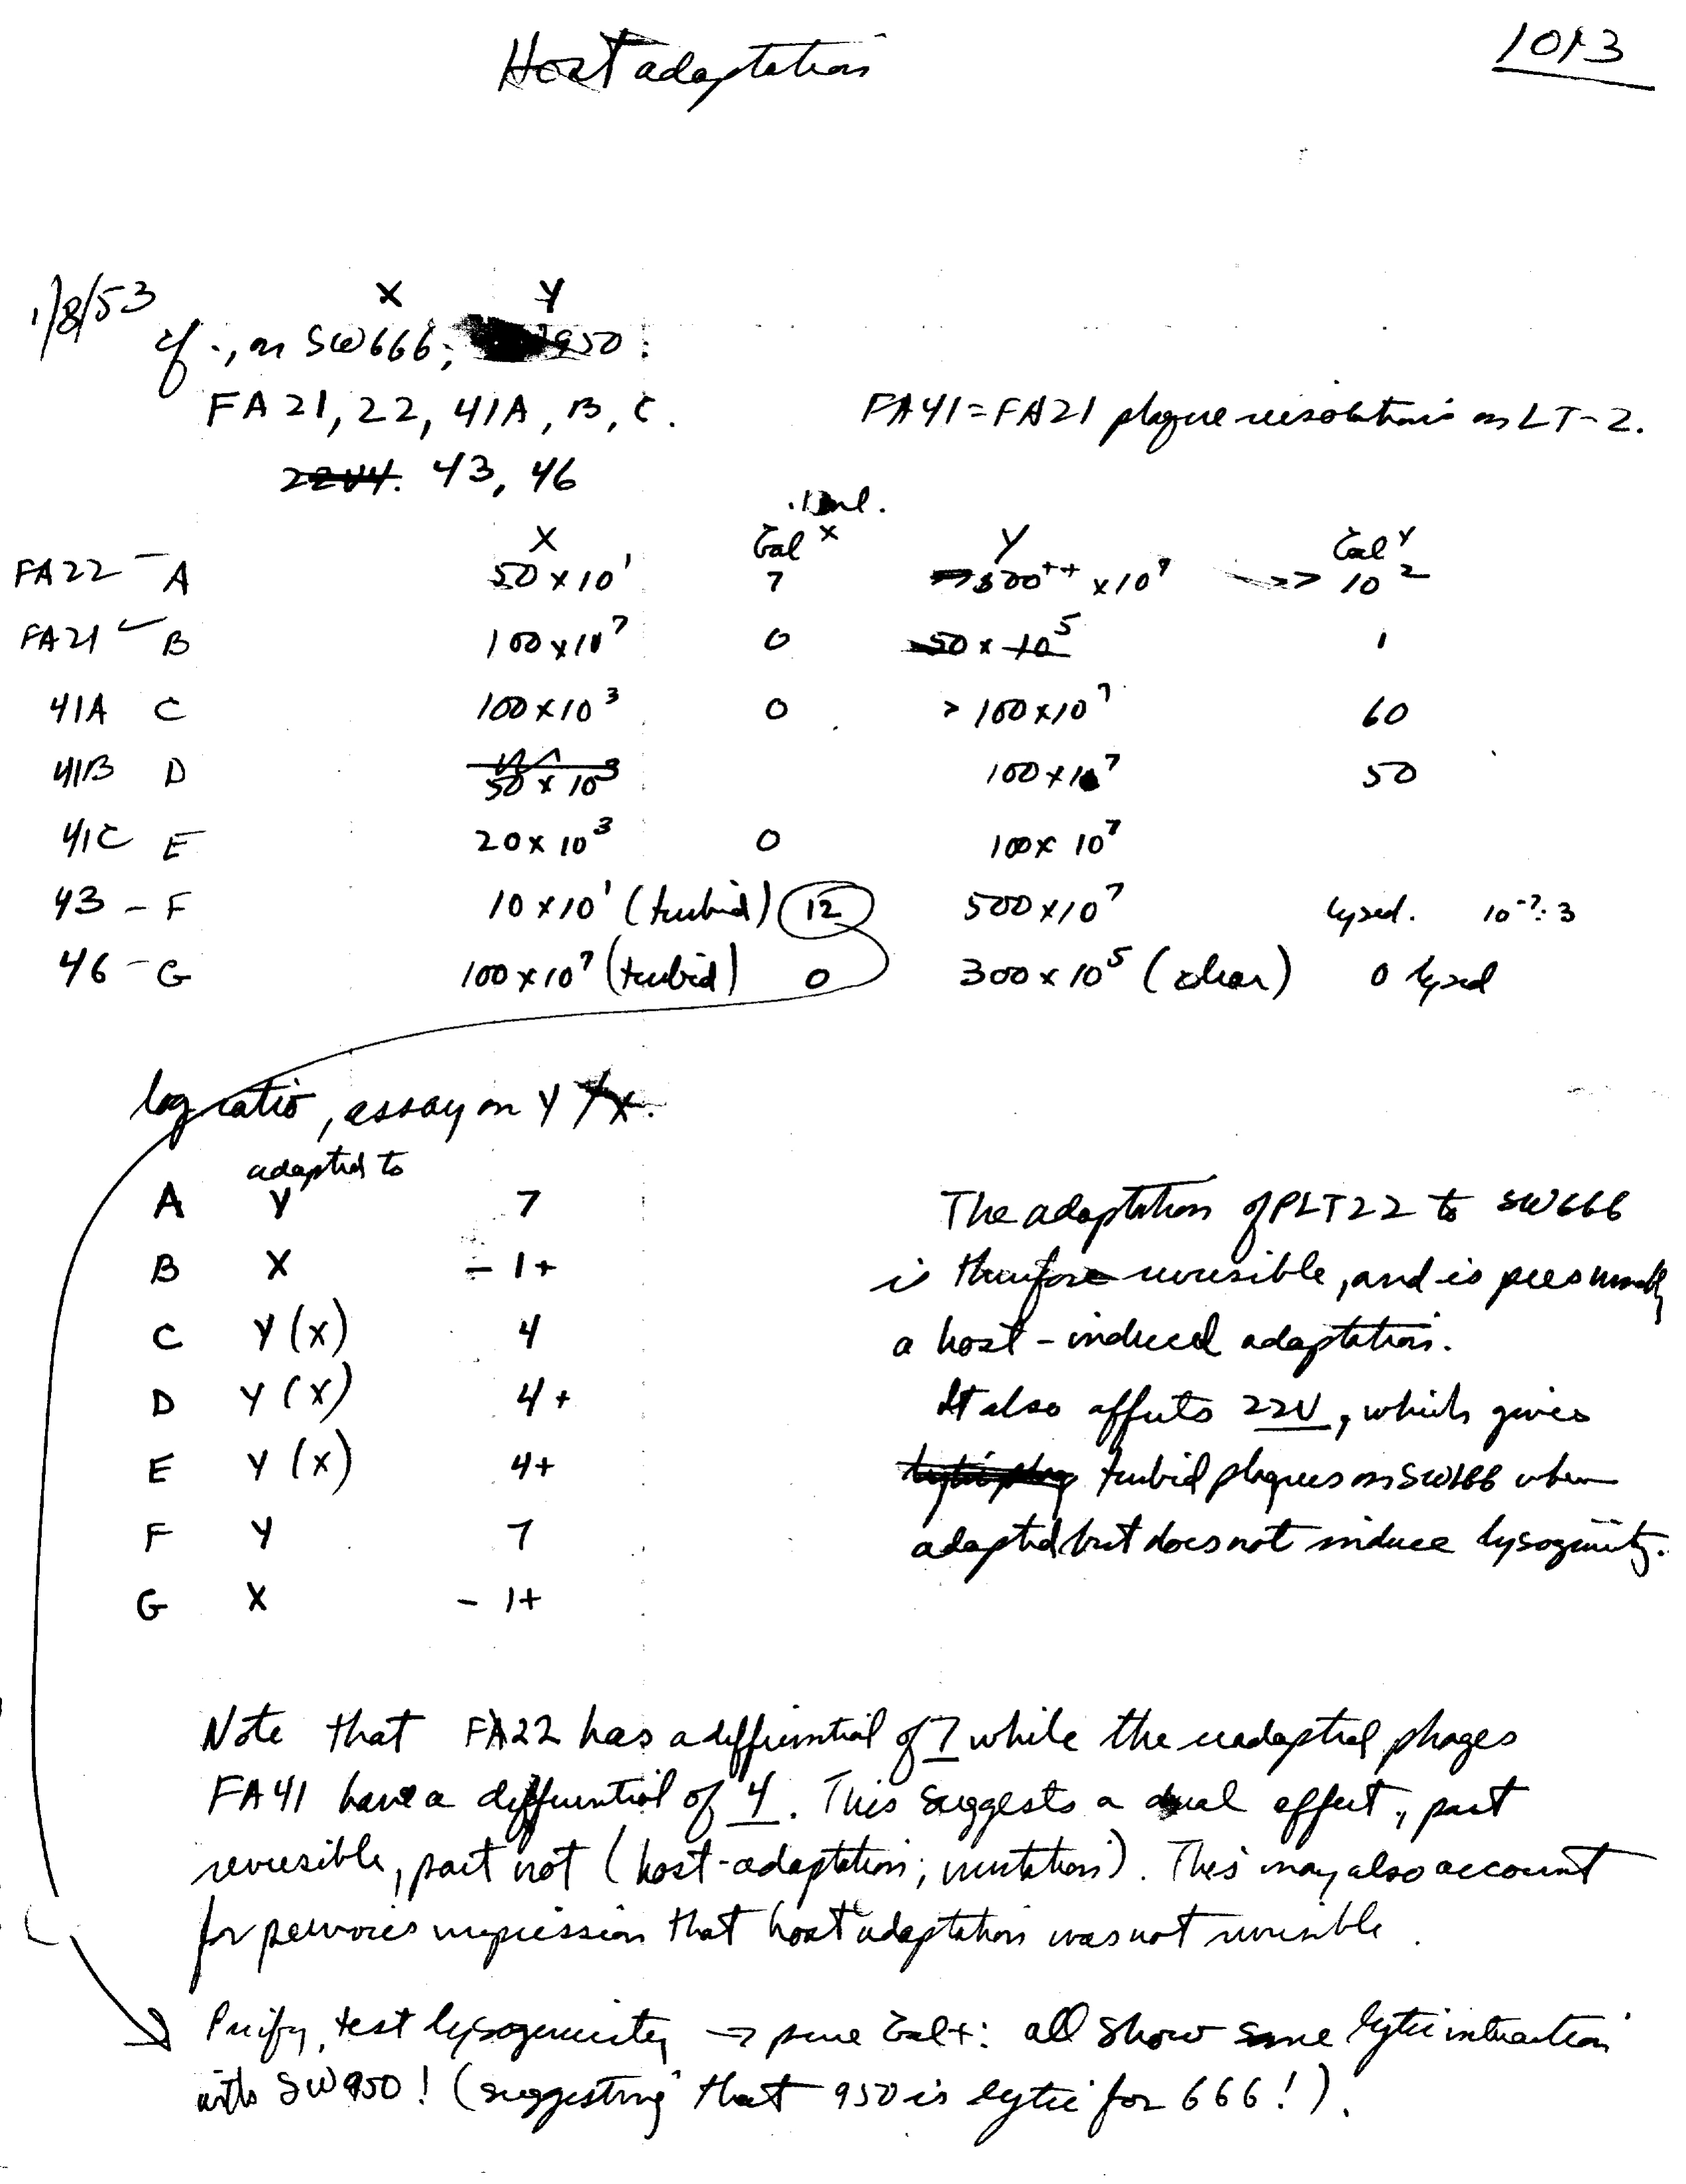 Host adaptation
1013
1/8/53
X Y
cf ., on SW666; 950:
FA21, 22, 41A, B, C.
FA41 = FA21 plaque reisolations on LT-2.
43, 46
X Gal x Y Gal y
FA22 - A 50 x 10^1 7 ++ x 10^7 >> 10^2
FA21 B 100 x 10^7 0 50 x 10^5 1
41A C 100 x 10^3 0 > 100 x 10^7 60
41B D 50 x 10^3 100 x 10^7 50
41C E 20 x 10^3 0 100 x 10^7
43 - F 10 x 10^1 (turbid) 12 500 x 10^7 lysed. 10^-7: 3
46 - G 100 x 10^7 (turbid) 0 300 x 10^5 (clear) 0 lysed
log ratio, assay on Y / X.
adapted to
A Y 7
B X - 1+
C Y (X) 4
D Y (X) 4+
E Y (X) 4+
F Y 7
G X - 1+
The adaptation of PLT22 to SW666
is therefore reversible, and is presumably
a host-induced adaptation.
It also affects 22V, which gives
turbid plaques on SW666 when
adapted but does not induce lysogenicity.
Note that FA22 has a differential of 7 while the readapted phages
FA41 have a differential of 4. This suggests a dual effect, part
reversible, part not (host-adaptation; mutation). This may also account
for previous impression that host adaptation was not reversible.
Purify, test lysogenicity → pure Gal+: all show same lytic interaction
with SW950! (suggesting that 950 is lytic for 666!).